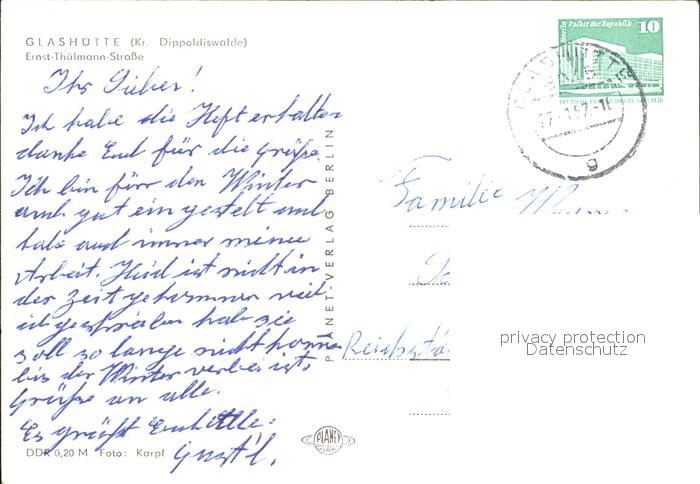 GLASHÜTTE (Kr. Dippoldiswalde)
Ernst-Thälmann-Straße
Ihr Lieben!
Ich habe die Heft erhalten
danke Euch für die Grüße.
Ich bin förr den Winter
auch gut ein gestelt und
habe auch immer meine
Arbeit. Heid ist nicht in
der Zeit gekommen weil
ich geschrieben hab sie
soll so lange nicht kommen
bis der Winter vorbei ist.
Grüße an alle.
Es grüßt Euch alle:
Gust'l.
DDR 0,20 M Foto: Karpf
PLANET-VERLAG BERLIN
PLANET
Berlin Palast der Republik 10
GLASHÜTTE
g
Familie
Reichstä
privacy protection
Datenschutz